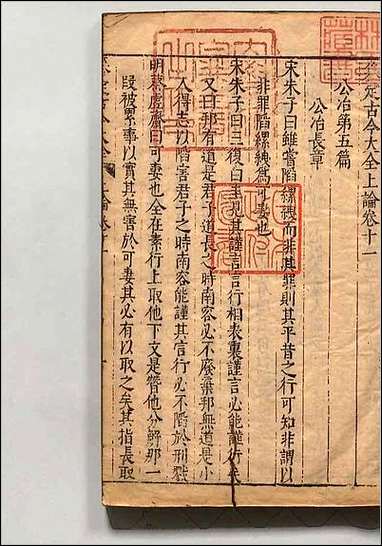 定古今大全上論卷十一
公冶第五篇
公冶長章
宋朱子曰雖嘗陷縲絏而非其罪則其平昔之行可知非謂以
非罪陷縲絏為可妻也
宋朱子曰三復白圭其謹言言行相表裏謹言必能謹行矣
又曰邦有道是君子道長之時南容必不廢棄邦無道是小
人得志以陷害君子之時南容能謹其言行必不陷於刑戮
明蔡虛齋曰可妻也全在素行上取他下文是替他分解那一
段被累事以實其無害於可妻其必有以取之矣其指長取